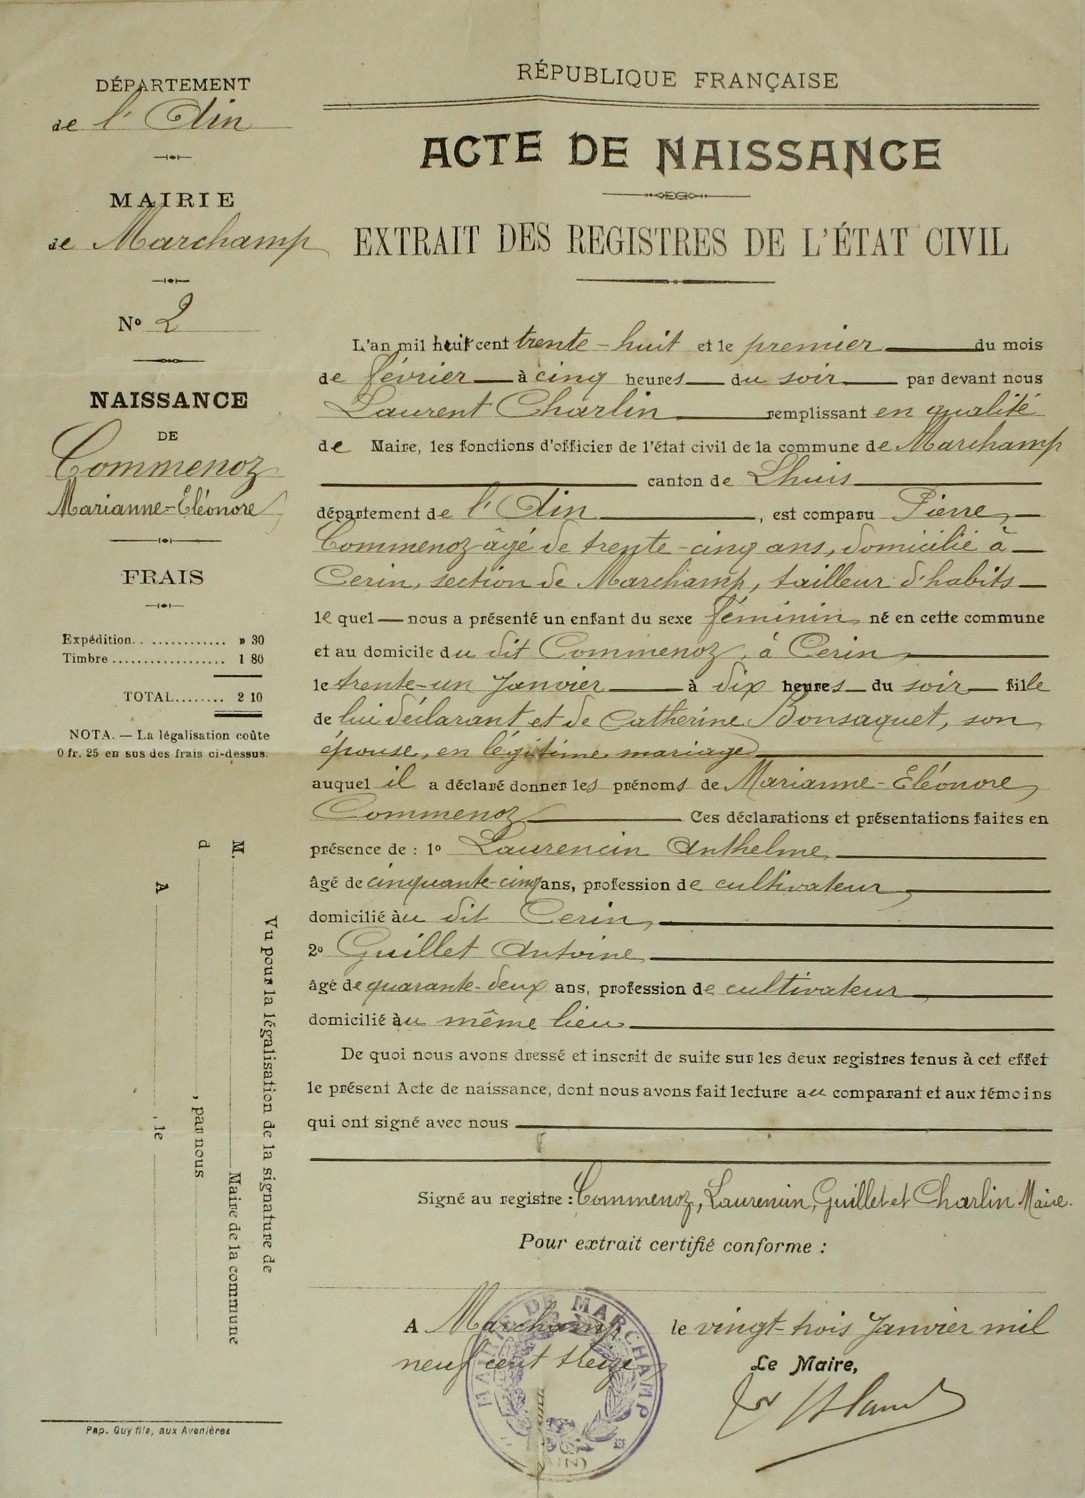 DÉPARTEMENT
de l'Ain
MAIRIE
de Marchamp
N° 2
NAISSANCE
DE
Commenoz
Marianne-Eléonore
FRAIS
Expédition. . ............ » 30
Timbre .................. 1 80
TOTAL........ 2 10
NOTA. — La légalisation coûte
0 fr. 25 en sus des frais ci-dessus.
Vu pour la légalisation de la signature de
M. Maire de la commune
d , par nous
A , le
Pap. Guy fils, aux Avenières
RÉPUBLIQUE FRANÇAISE
ACTE DE NAISSANCE
EXTRAIT DES REGISTRES DE L'ÉTAT CIVIL
L'an mil huit cent trente-huit et le premier du mois
de février à cinq heures du soir par devant nous
Laurent Charlin remplissant en qualité
de Maire, les fonctions d'officier de l'état civil de la commune de Marchamp
canton de Lhuis
département de l'Ain , est comparu Pierre
Commenoz âgé de trente-cinq ans, domicilié à
Cerin, section de Marchamp, tailleur d'habits
lequel nous a présenté un enfant du sexe féminin né en cette commune
et au domicile du dit Commenoz, à Cerin
le trente-un Janvier à dix heures du soir fille
de lui déclarant et de Catherine Bonsaquet, son
épouse, en légitime mariage
auquel il a déclaré donner les prénoms de Marianne-Eléonore
Commenoz Ces déclarations et présentations faites en
présence de : 1° Laurencin Anthelme
âgé de cinquante-cinq ans, profession de cultivateur
domicilié au dit Cerin
2° Guillet Antoine
âgé de quarante-deux ans, profession de cultivateur
domicilié au même lieu
De quoi nous avons dressé et inscrit de suite sur les deux registres tenus à cet effet
le présent Acte de naissance, dont nous avons fait lecture au comparant et aux témoins
qui ont signé avec nous
Signé au registre : Commenoz, Laurencin, Guillet et Charlin Maire.
Pour extrait certifié conforme :
A Marchamp le vingt-trois Janvier mil
neuf cent treize
Le Maire,
MAIRIE DE MARCHAMP